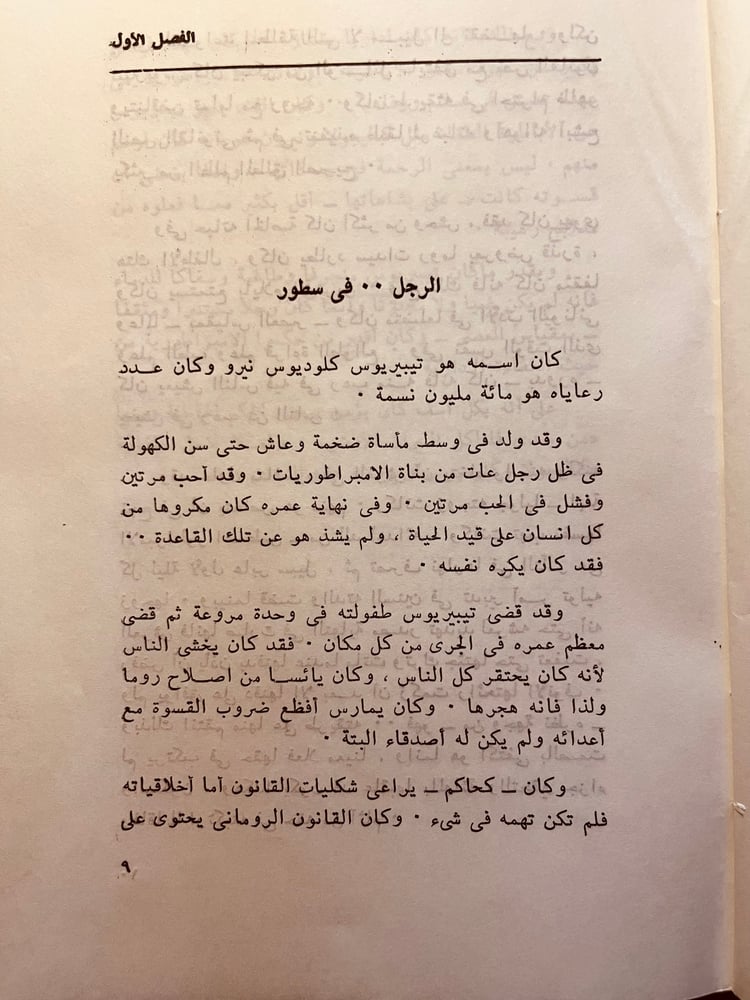 الفصل الأول
الرجل ٠٠ فى سطور
كان اسمه هو تيبيريوس كلوديوس نيرو وكان عدد
رعاياه هو مائة مليون نسمة ٠
وقد ولد فى وسط مأساة ضخمة وعاش حتى سن الكهولة
فى ظل رجل عات من بناة الامبراطوريات ٠ وقد أحب مرتين
وفشل فى الحب مرتين ٠ وفى نهاية عمره كان مكروها من
كل انسان على قيد الحياة ، ولم يشذ هو عن تلك القاعدة ٠٠
فقد كان يكره نفسه ٠
وقد قضى تيبيريوس طفولته فى وحدة مروعة ثم قضى
معظم عمره فى الجرى من كل مكان ٠ فقد كان يخشى الناس
لأنه كان يحتقر كل الناس ، وكان يائسا من اصلاح روما
ولذا فانه هجرها ٠ وكان يمارس أفظع ضروب القسوة مع
أعدائه ولم يكن له أصدقاء البتة ٠
وكان ــ كحاكم ــ يراعى شكليات القانون أما أخلاقياته
فلم تكن تهمه فى شىء ٠ وكان القانون الرومانى يحتوى على
٩